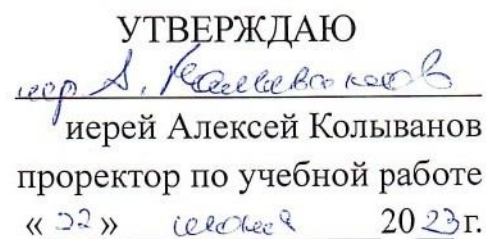 УТВЕРЖДАЮ
иер А.
иерей Алексей Колыванов
проректор по учебной работе
« 22 » 2023 г.